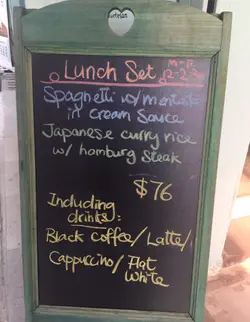 Lunch Set
Spaghetti w/ mentaiko
in Cream Sauce
Japanese curry rice
w/ hamburg steak
$76
Including
drinks:
Black Coffee/Latte/
Cappuccino/ Flat
White